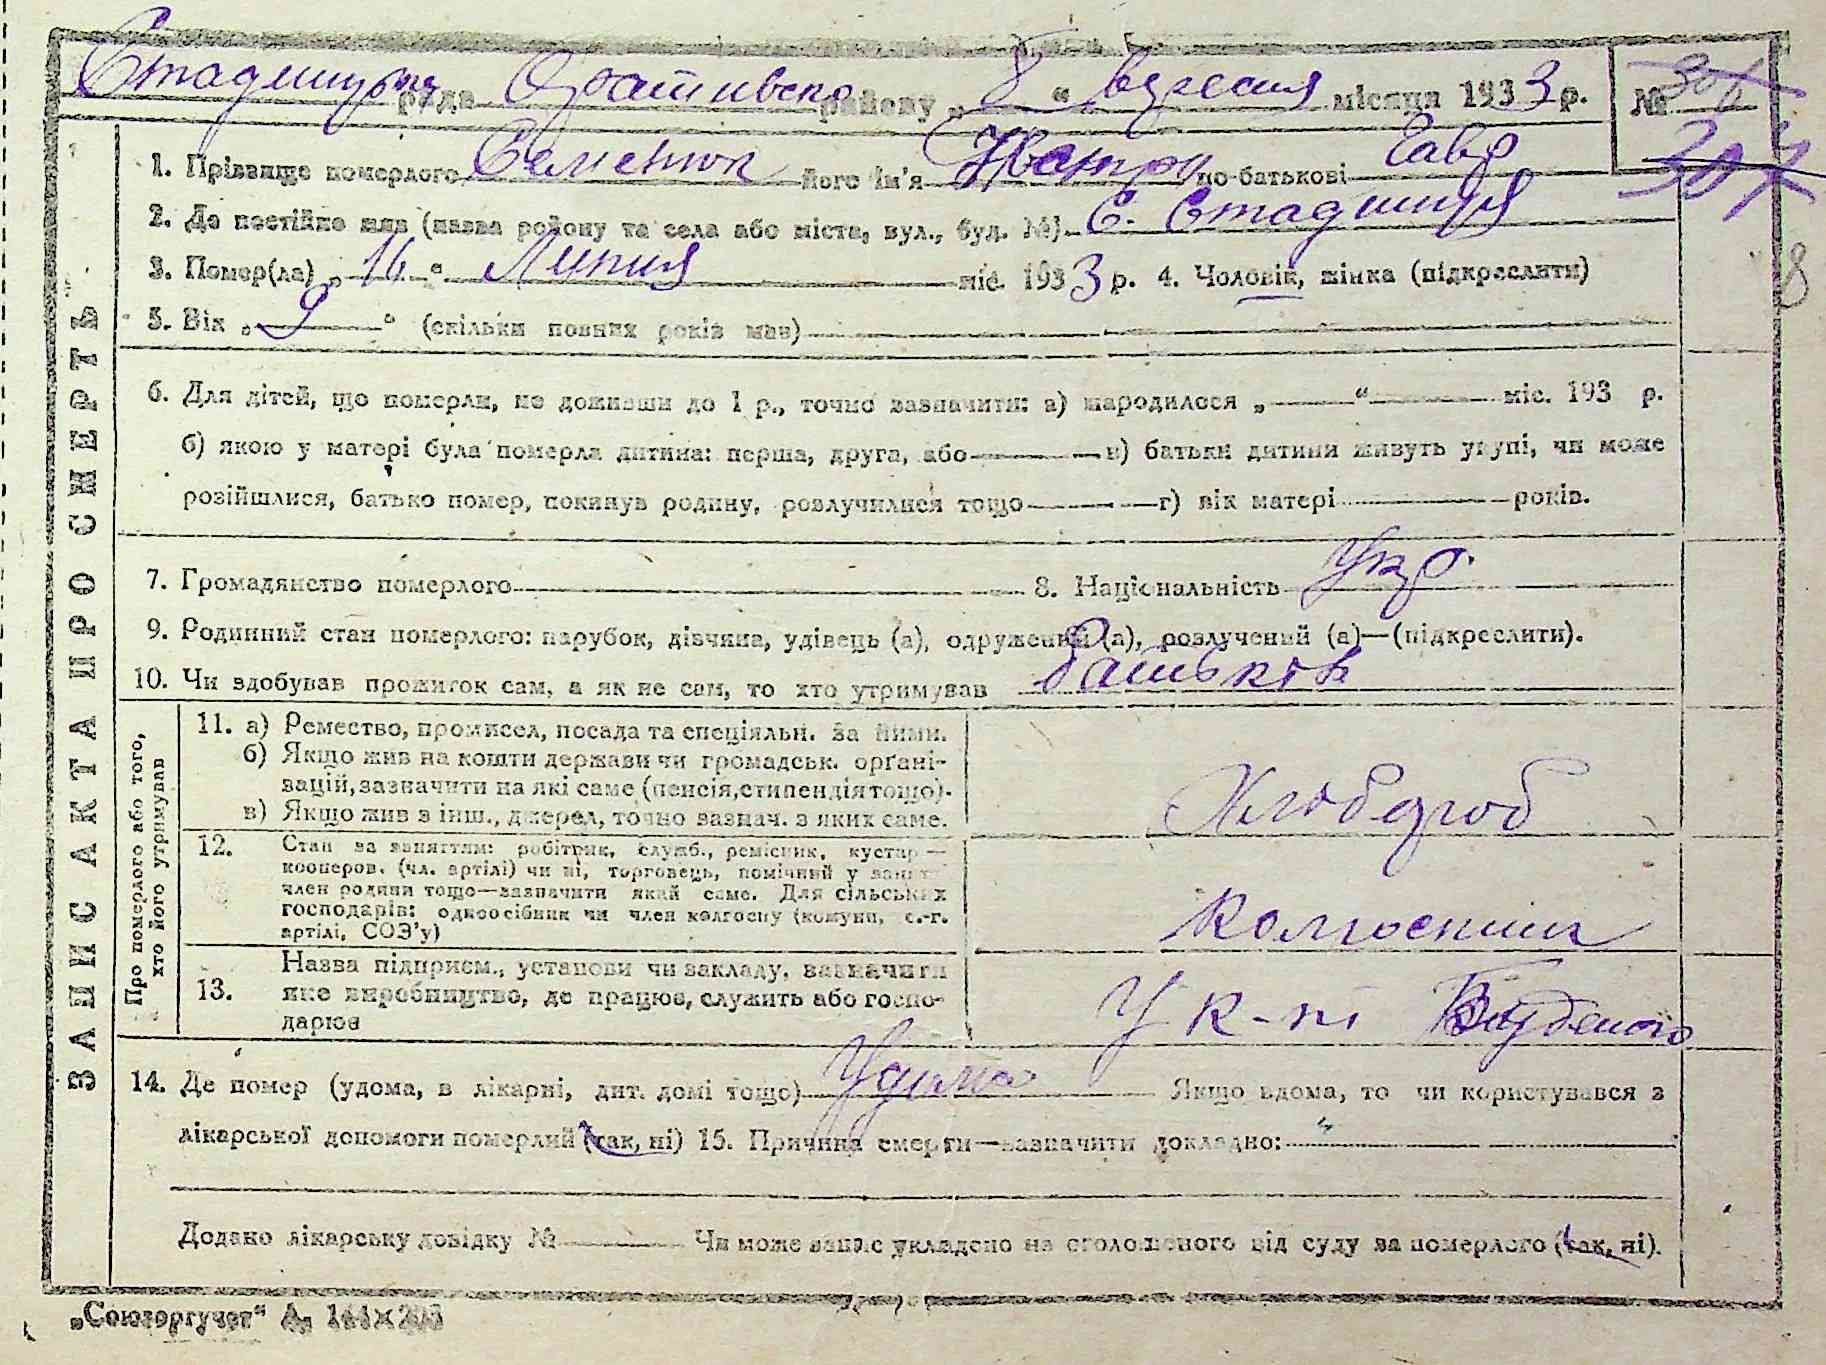 Стадницька рада Оратівсько району „ 8 “ вересня місяця 1933 р. №
307
1. Прізвище померлого Семенюк його ім'я по батькові Гавр
2. Де постійно жив (назва району та села або міста, вул., буд. №) С. Стадниця
3. Помер(ла) „ 16 “ Липня міс. 1933 р. 4. Чоловік, жінка (підкреслити)
8
5. Вік „ 9 “ (скільки повних років мав)
6. Для дітей, що померли, не доживши до 1 р., точно зазначити: а) народилося „ “ міс. 193 р.
б) якою у матері була померла дитина: перша, друга, або в) батьки дитини живуть укупі, чи може
розійшлися, батько помер, покинув родину, розлучилися тощо г) вік матері років.
7. Громадянство померлого 8. Національність Укр.
9. Родинний стан померлого: парубок, дівчина, удівець (а), одружений (а), розлучений (а)—(підкреслити).
10. Чи здобував прожиток сам, а як не сам, то хто утримував батьків
ЗАПИС АКТА ПРО СМЕРТЬ
Про померлого або того,
хто його утримував
11. а) Ремество, промисел, посада та спеціяльн. за ними.
б) Якщо жив на кошти держави чи громадськ. орґані-
зацій, зазначити на які саме (пенсія, стипендія тощо).
в) Якщо жив з інш., джерел, точно зазнач. з яких саме.
Хлібороб
12. Стан за заняттям: робітник, служб., ремісник, кустар—
кооперов. (чл. артілі) чи ні, торговець, помічний у занятті
член родини тощо—зазначити який саме. Для сільських
господарів: одноосібник чи член колгоспу (комуни, с.-г.
артілі, СОЗ'у)
Колгоспник
13. Назва підприєм., установи чи закладу, зазначити
яке виробництво, де працює, служить або госпо-
дарює
У к-пі Будьоного
14. Де помер (удома, в лікарні, дит. домі тощо) Удома Якщо вдома, то чи користувався з
лікарської допомоги померлий (так, ні) 15. Причина смерти—зазначити докладно:
Додано лікарську довідку № Чи може запис укладено на оголошеного від суду за померлого (так, ні).
„Союзоргучет“ А₅ 144×203